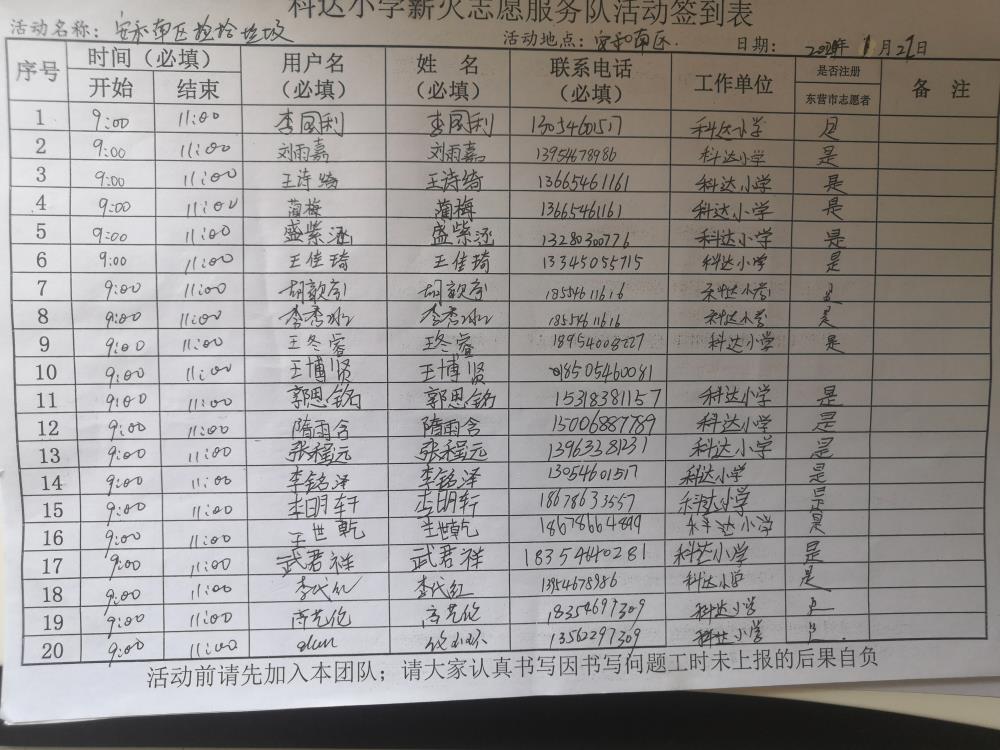 科达小学薪火志愿服务队活动签到表
活动名称：安和南区捡拾垃圾 活动地点：安和南区. 日期： 年 月21日
序号 时间（必填） 用户名（必填） 姓 名（必填） 联系电话（必填） 工作单位 是否注册东营市志愿者 备 注
开始 结束
1 9:00 11:00 李国利 李国利 13054601517 科达小学 是
2 9:00 11:00 刘雨嘉 刘雨嘉 13954678986 科达小学 是
3 9:00 11:00 王诗绮 王诗绮 13665461161 科达小学 是
4 9:00 11:00 蔺梅 蔺梅 13665461161 科达小学 是
5 9:00 11:00 盛紫涵 盛紫涵 13280300776 科达小学 是
6 9:00 11:00 王佳琦 王佳琦 13345055715 科达小学 是
7 9:00 11:00 18554611616 科达小学 是
8 9:00 11:00 18554611616 科达小学 是
9 9:00 11:00 王冬睿 王冬睿 18954008227 科达小学 是
10 9:00 11:00 王博贤 王博贤 18505460081
11 9:00 11:00 郭思铭 郭思铭 15318381157 科达小学 是
12 9:00 11:00 隋雨含 隋雨含 15006887789 科达小学 是
13 9:00 11:00 张程远 张程远 13963381231 科达小学 是
14 9:00 11:00 李铭泽 李铭泽 13054601517 科达小学 是
15 9:00 11:00 李明轩 李明轩 18678633557 科达小学 是
16 9:00 11:00 王世乾 王世乾 18678664899 科达小学 是
17 9:00 11:00 武君祥 武君祥 18354640281 科达小学 是
18 9:00 11:00 李代红 李代红 13954678986 科达小学 是
19 9:00 11:00 18354697309 科达小学
20 9:00 11:00 13562297309 科达小学
活动前请先加入本团队；请大家认真书写因书写问题工时未上报的后果自负